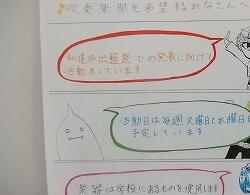 ♪吹奏楽部を希望するみなさんへ
私達は出藝祭での発表に向けて
活動をしています
活動日は毎週火曜日と水曜日に
予定しています
楽器は学校にあるものを使用します